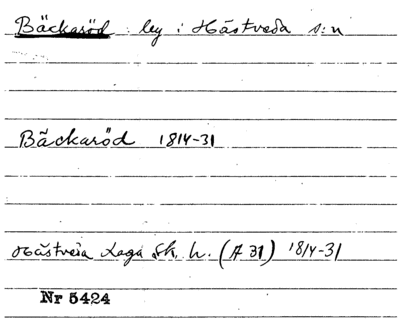 Bäckaröd. ley i Hästveda s:n
Bäckaröd 1814-31
Hästveda Laga Sk. h. (A 31) 1814-31
Nr 5424